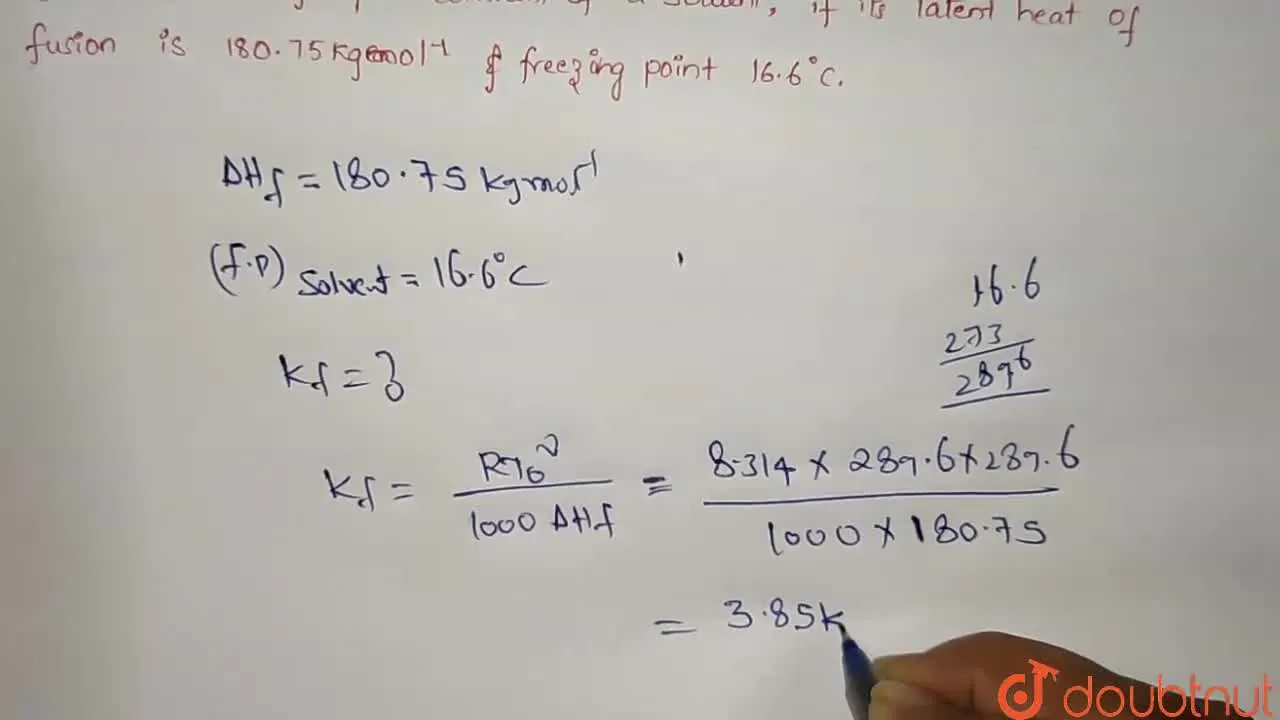 of a solution, if its latent heat of
fusion is 180.75 kg mol⁻¹ & freezing point 16.6°C.
ΔHf = 180.75 kg mol⁻¹
(f.p) Solvent = 16.6°C
16.6
273
289.6
Kf = ?
Kf = RT₀² / 1000 ΔHf = 8.314 × 289.6 × 289.6 / 1000 × 180.75
= 3.85 k
doubtnut